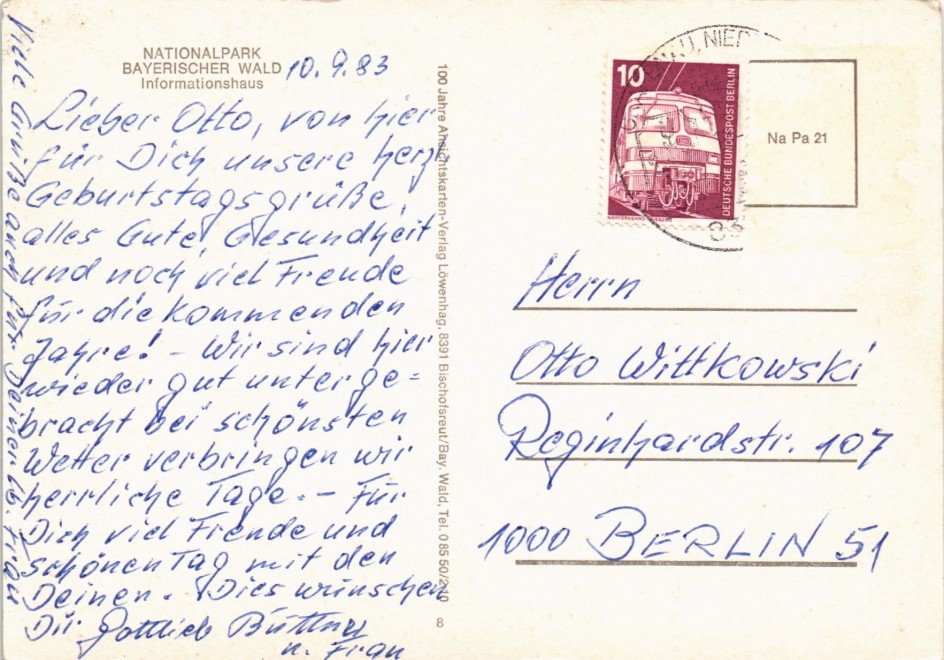 NATIONALPARK
BAYERISCHER WALD
Informationshaus
10.9.83
Lieber Otto, von hier
für Dich unsere herzl
Geburtstagsgrüße,
alles Gute, Gesundheit
und noch viel Freude
für die kommenden
Jahre! - Wir sind hier
wieder gut unterge=
bracht bei schönsten
Wetter verbringen wir
herrliche Tage. - Für
Dich viel Freude und
schönen Tag mit den
Deinen. Dies wünschen
Dir Gottlieb
u. Frau
Viele Grüße auch für Deine lb. Frau
100 Jahre Ansichtskarten-Verlag Löwenhag, 8391 Bischofsreut/Bay. Wald, Tel. 08550/210
8
10
DEUTSCHE BUNDESPOST BERLIN
Na Pa 21
Herrn
Otto Wittkowski
Reginhardstr. 107
1000 BERLIN 51